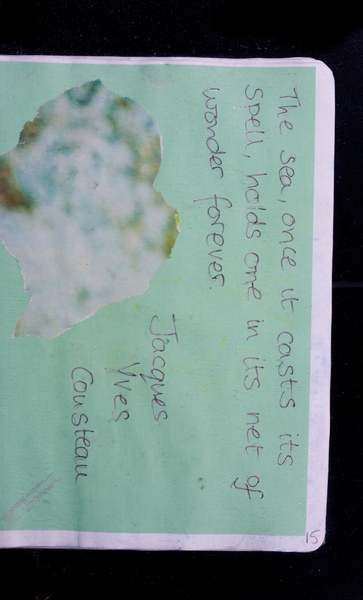 The sea, once it casts its
spell, holds one in its net of
wonder forever.
Jacques
Yves
Cousteau
15